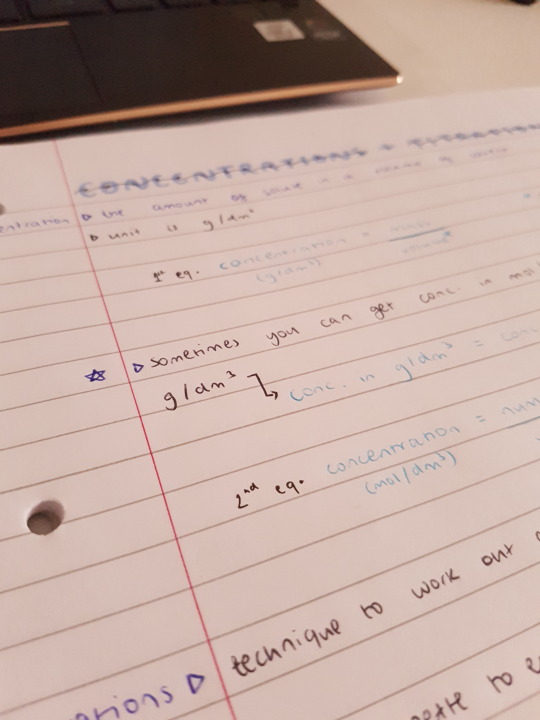 CONCENTRATIONS + TITRATIONS
entration ▷ the amount of in a volume of
▷ unit is g/dm³
1st eq. concentration = mass
(g/dm³) volume
☆ ▷ sometimes you can get conc. in mol
g/dm³ ↳ conc. in g/dm³ = conc
2nd eq. concentration = num
(mol/dm³)
technique to work out
ations ▷
to